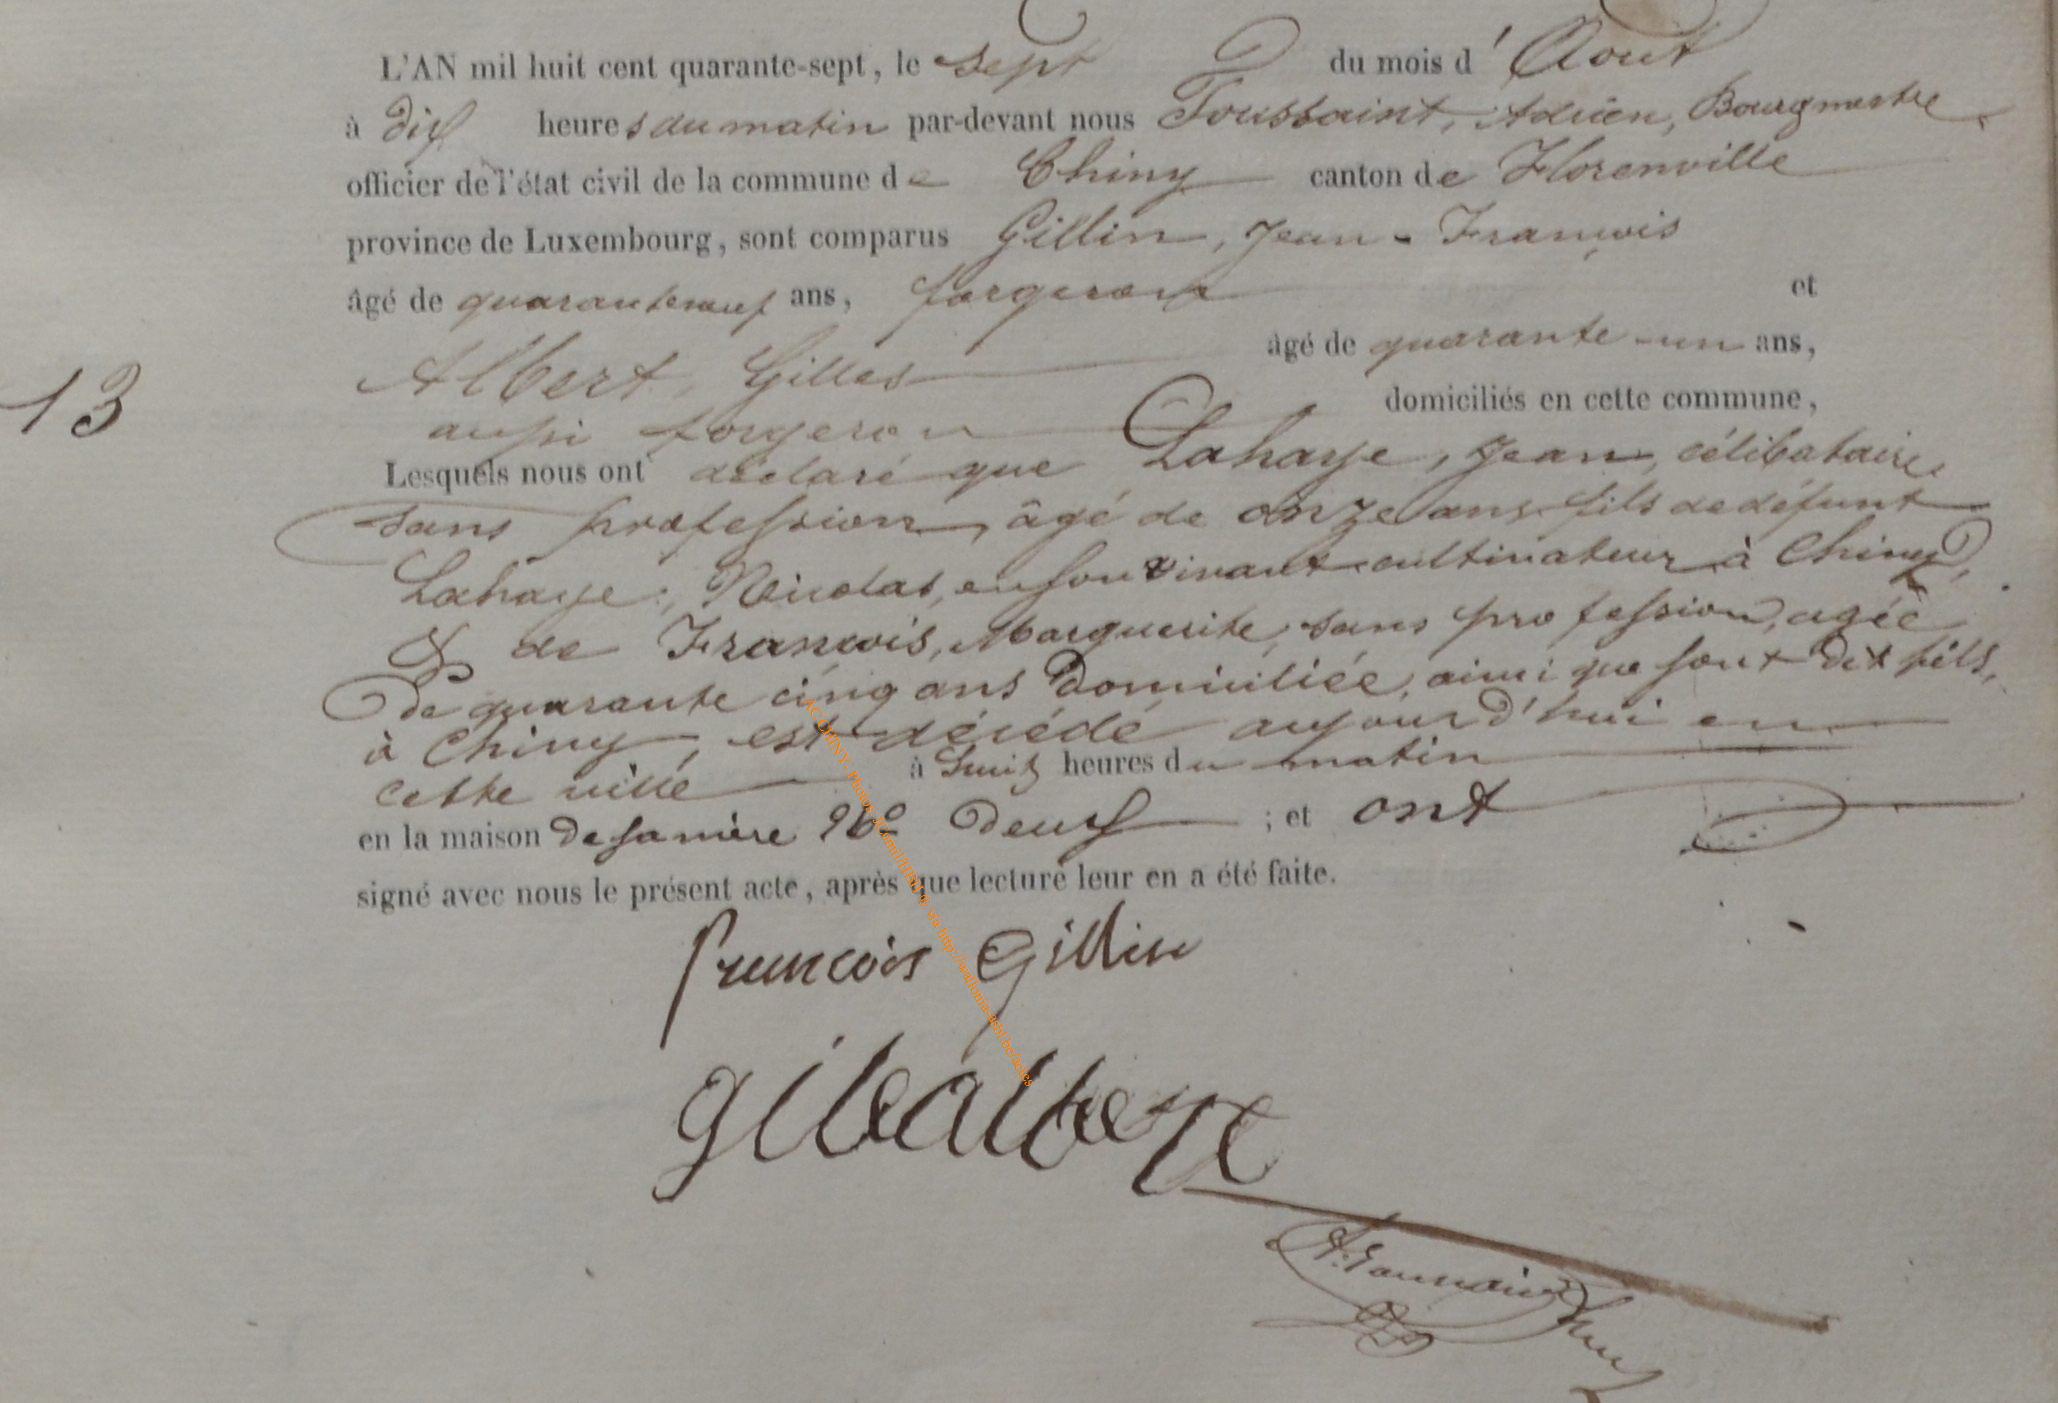 L'AN mil huit cent quarante-sept, le sept du mois d'Aout
à dix heures du matin par-devant nous Toussaint, Adrien, Bourgmestre
officier de l'état civil de la commune de Chiny canton de Florenville
province de Luxembourg, sont comparus Gillin, Jean-François
âgé de quarante neuf ans, forgeron et
Albert, Gilles âgé de quarante-un ans,
aussi forgeron domiciliés en cette commune,
Lesquels nous ont déclaré que Lahaye, Jean, célibataire
sans profession, âgé de onze ans fils de défunt
Lahaye, Nicolas, en son vivant cultivateur à Chiny,
& de François, Marguerite, sans profession, agée
de quarante cinq ans domiciliée, ainsi que sont dit fils,
à Chiny, est décédé aujourd'hui en
cette ville à huit heures du matin
en la maison de sa mère No deux ; et ont
signé avec nous le présent acte, après que lecture leur en a été faite.
13
francois Gillin